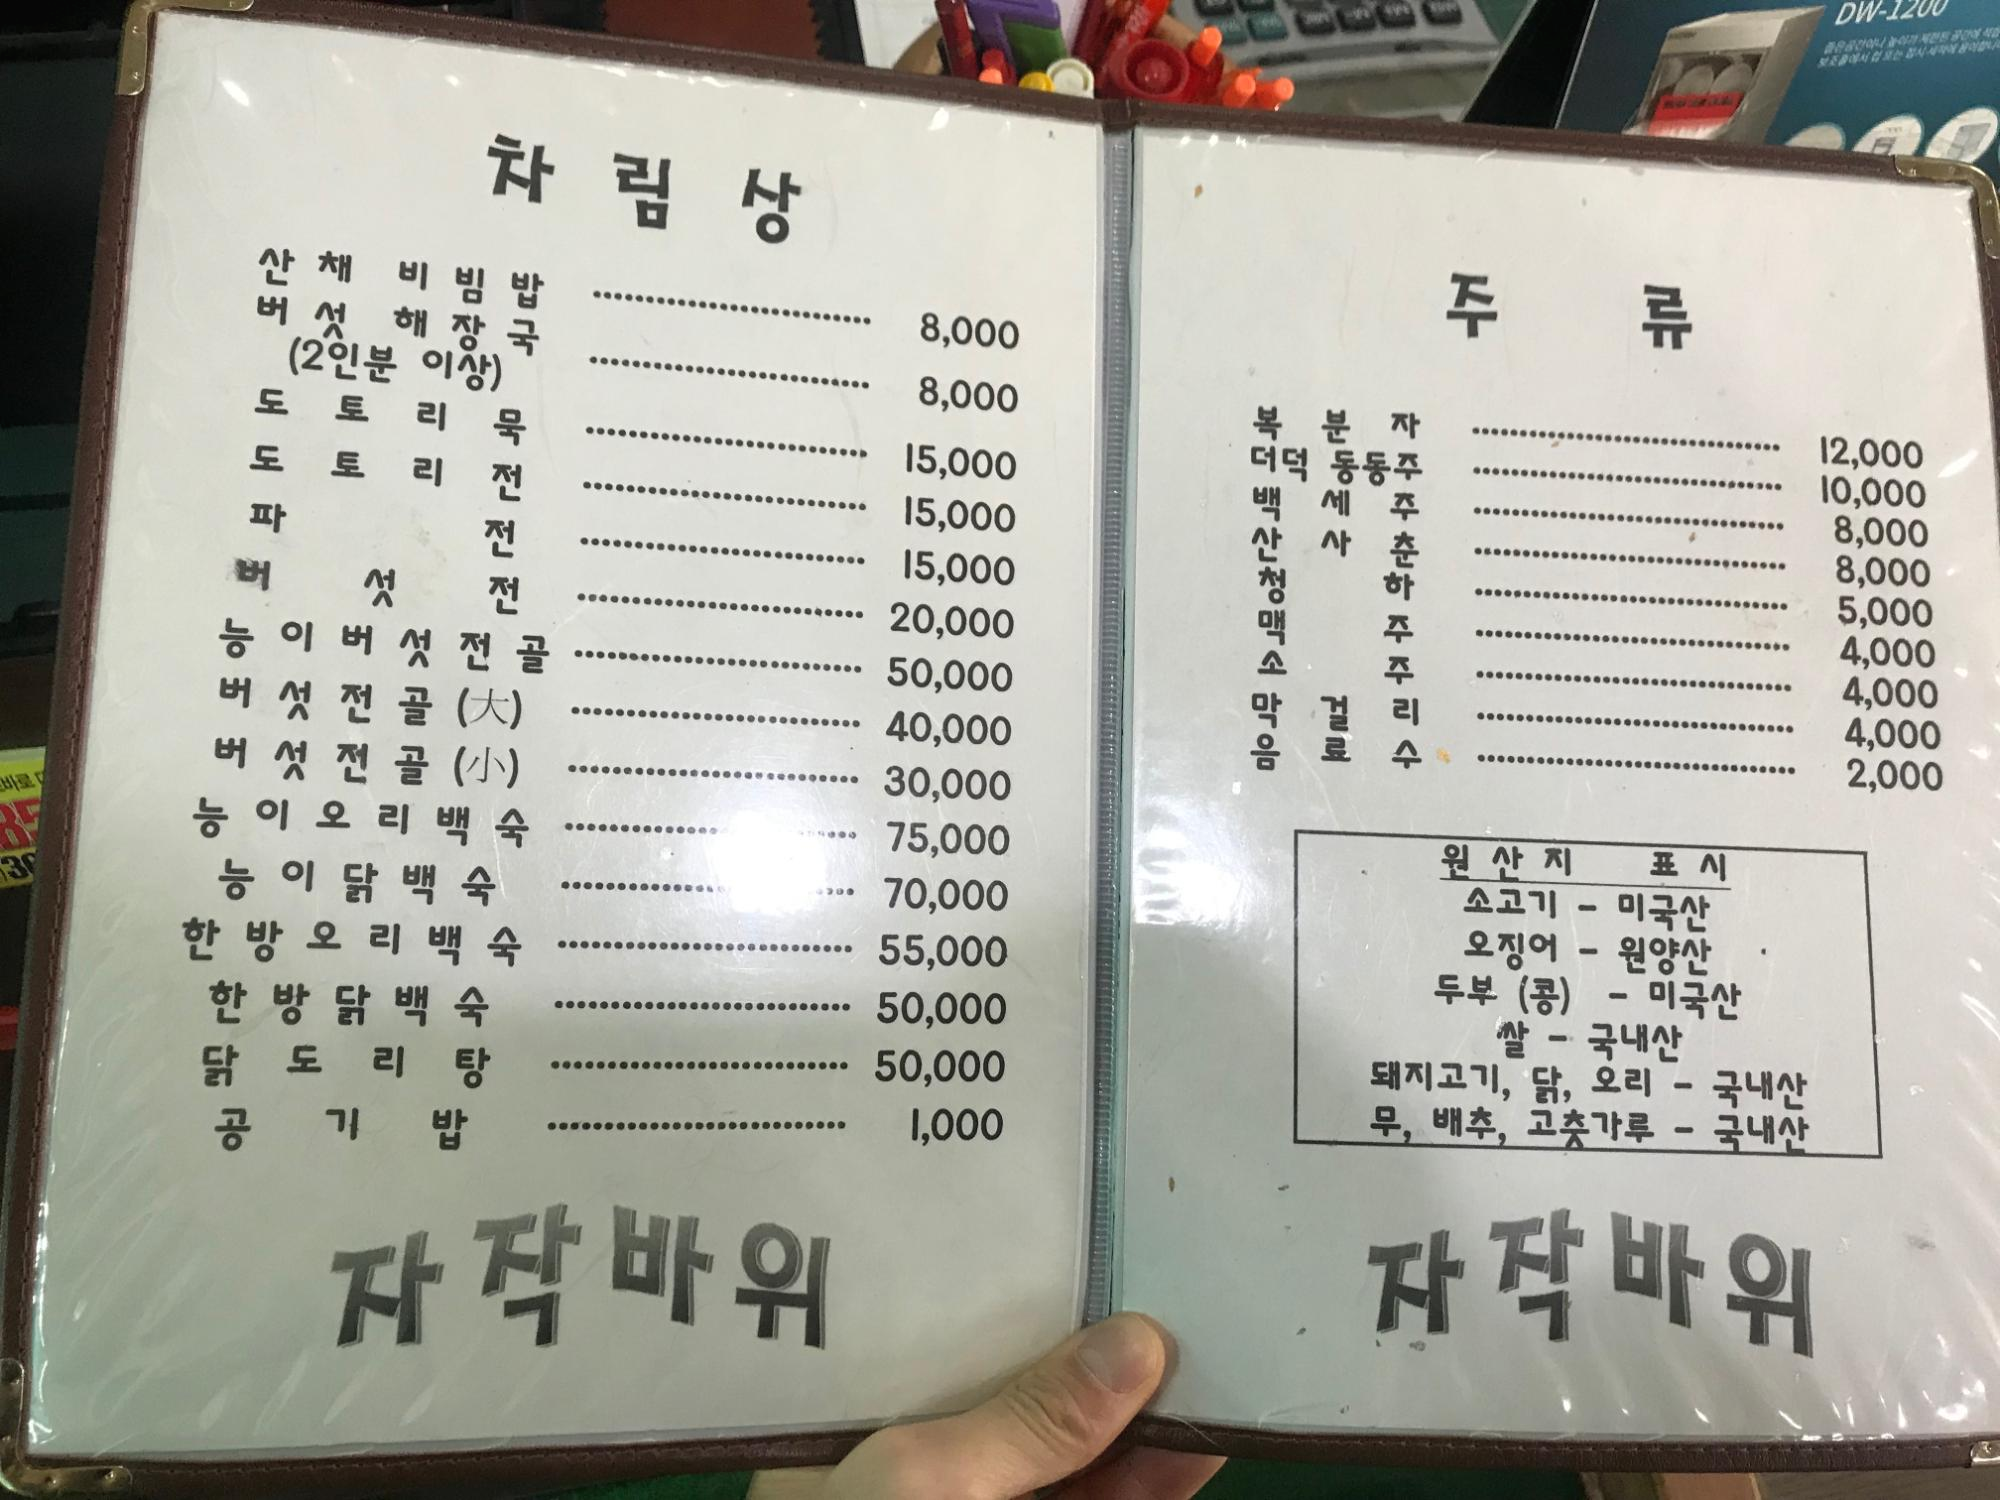 차림상
산채 비빔밥 8,000
버섯 해장국 8,000
(2인분 이상)
도토리묵 15,000
도토리전 15,000
파전 15,000
버섯전 20,000
능이버섯전골 50,000
버섯전골(大) 40,000
버섯전골(小) 30,000
능이오리백숙 75,000
능이닭백숙 70,000
한방오리백숙 55,000
한방닭백숙 50,000
닭도리탕 50,000
공기밥 1,000
자작바위
주류
복분자 12,000
더덕 동동주 10,000
백세주 8,000
산사춘 8,000
청하 5,000
맥주 4,000
소주 4,000
막걸리 4,000
음료수 2,000
원산지 표시
소고기 - 미국산
오징어 - 원양산
두부 (콩) - 미국산
쌀 - 국내산
돼지고기, 닭, 오리 - 국내산
무, 배추, 고춧가루 - 국내산
자작바위
DW-1200